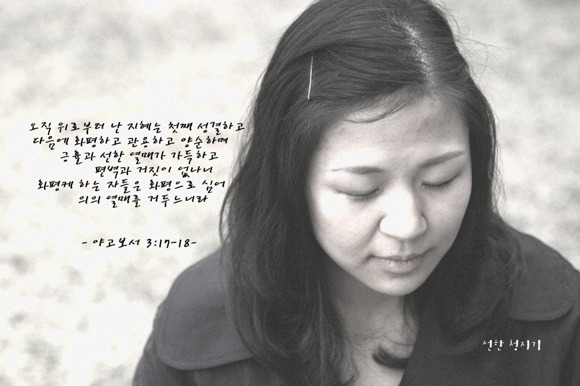 오직 위로부터 난 지혜는 첫째 성결하고
다음에 화평하고 관용하고 양순하며
긍휼과 선한 열매가 가득하고
편벽과 거짓이 없나니
화평케 하는 자들은 화평으로 심어
의의 열매를 거두느니라
- 야고보서 3:17-18-
선한 청지기